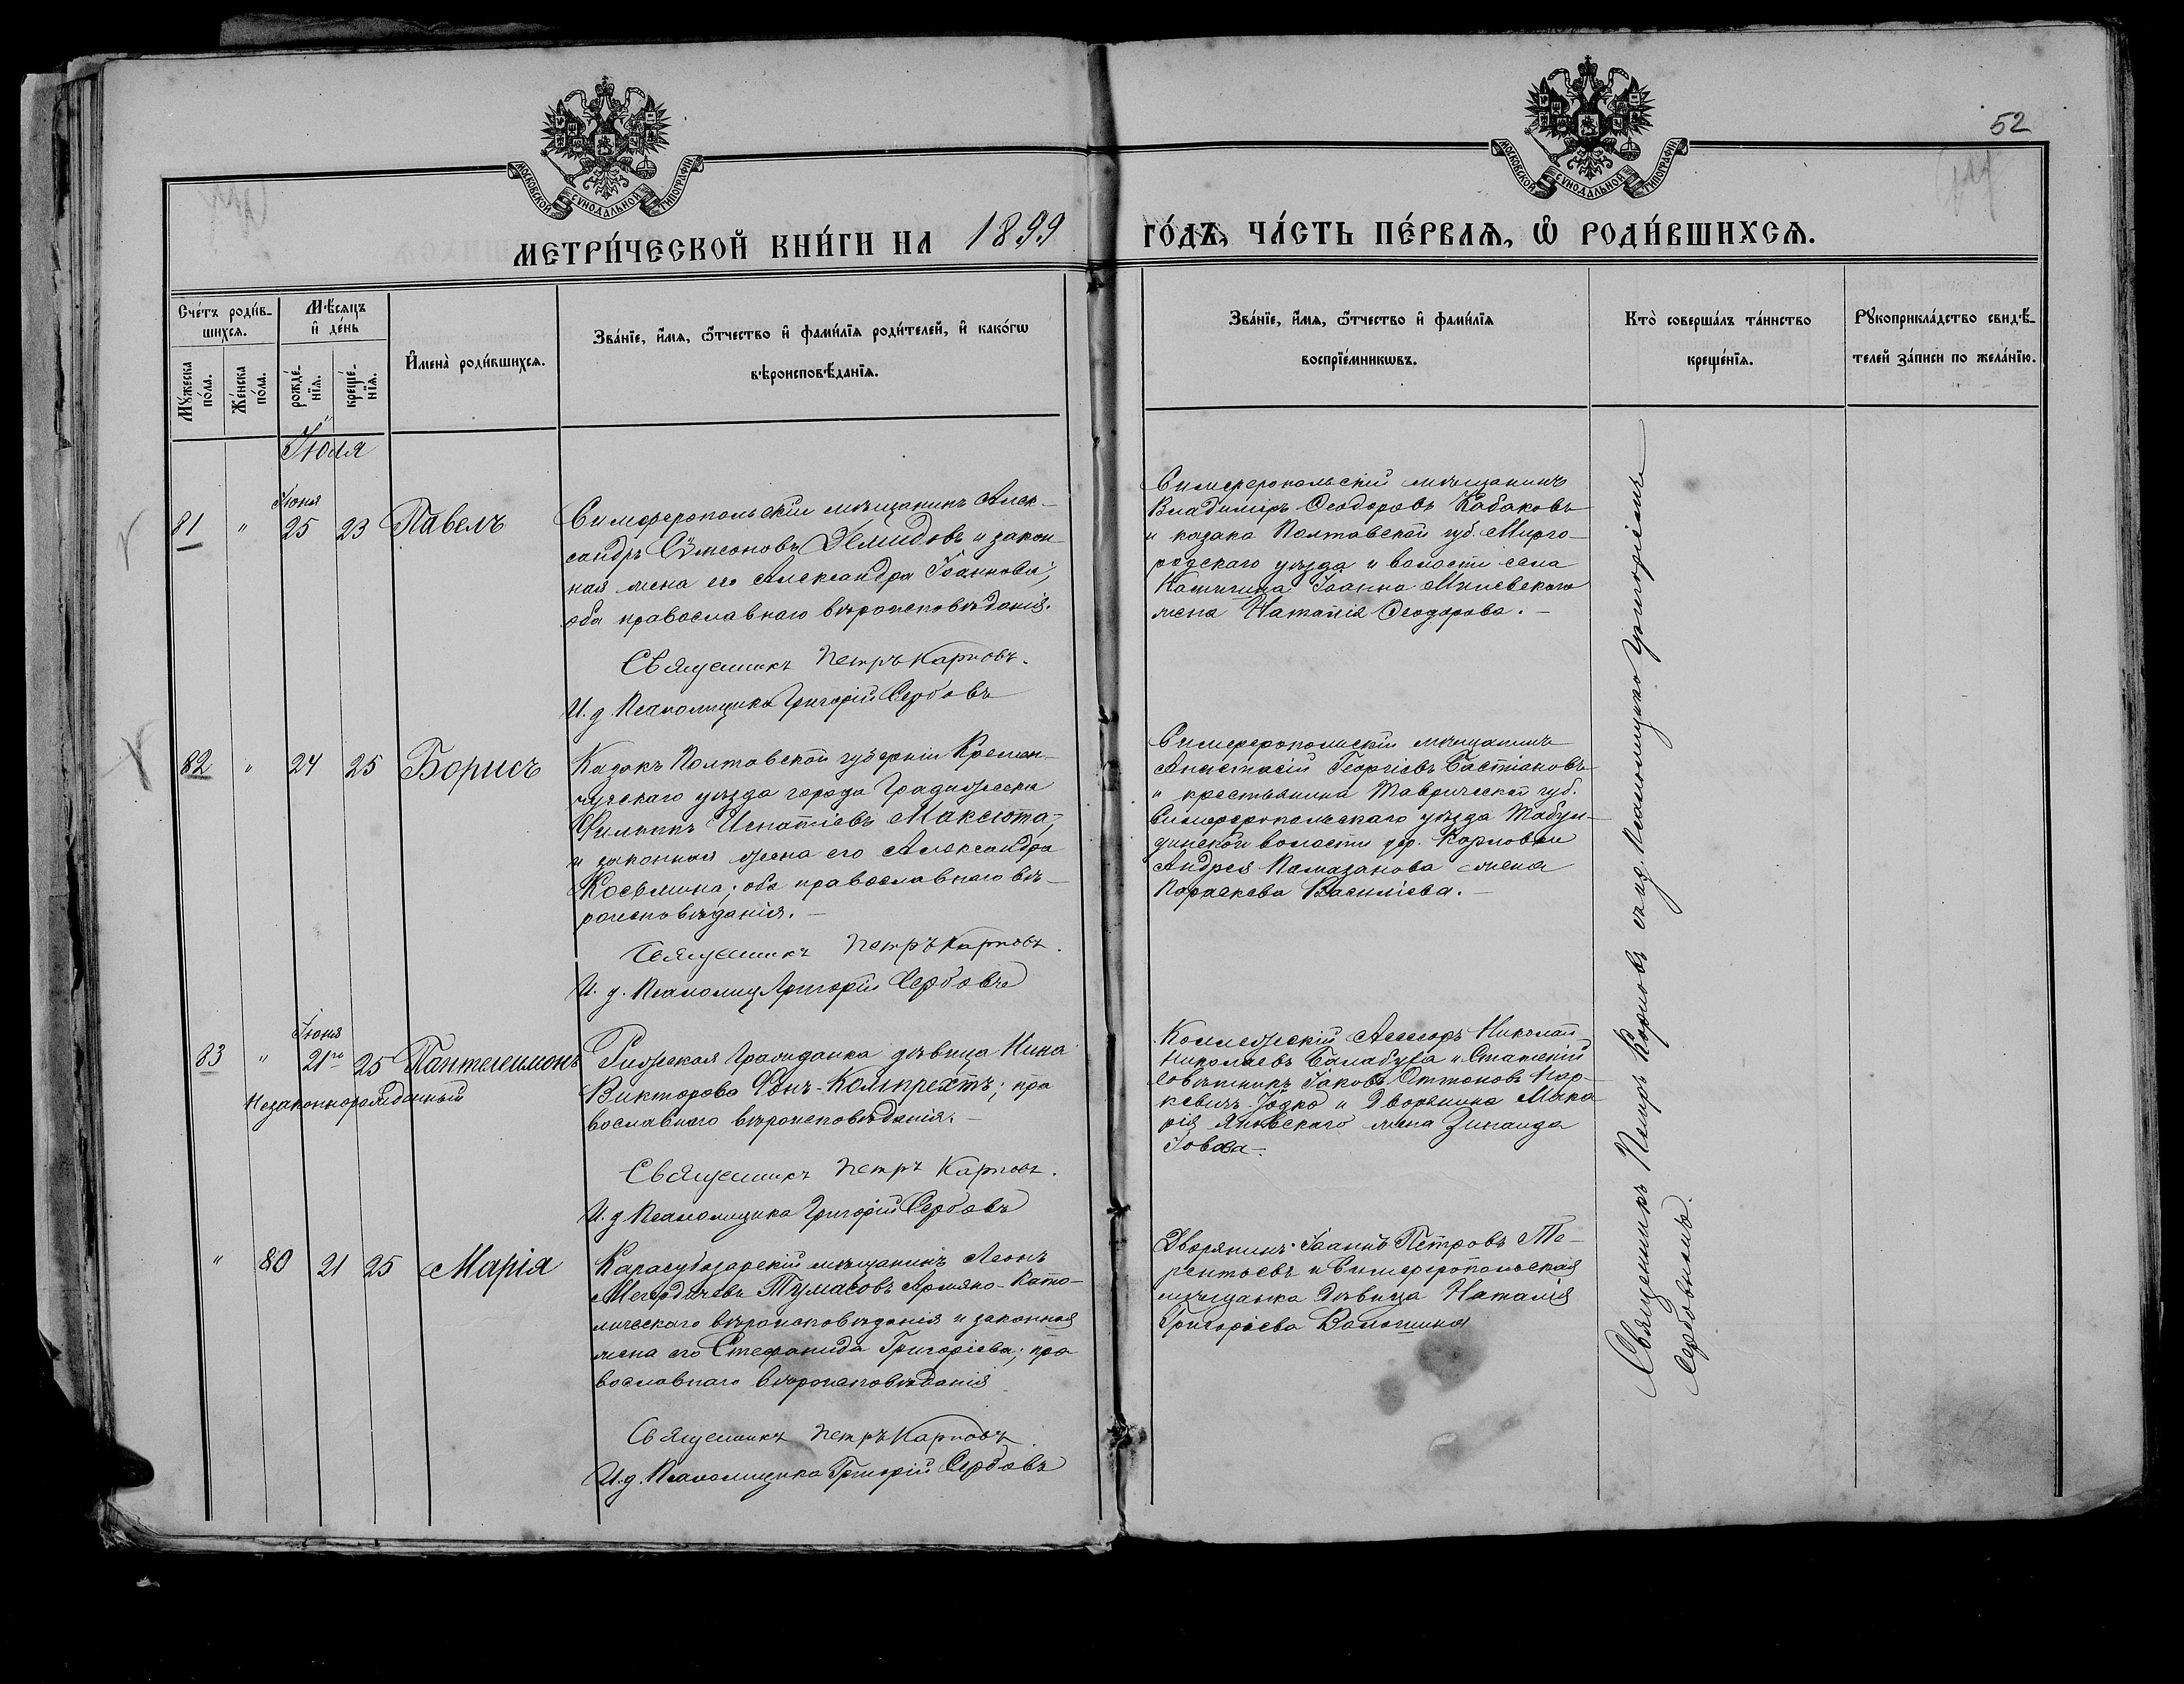 52
МОСКОВСКОЙ СѴНОДАЛЬНОЙ ТИПОГРАФІИ
МОСКОВСКОЙ СѴНОДАЛЬНОЙ ТИПОГРАФІИ
МЕТРИ́ЧЕСКОЙ КНИ́ГИ НА 1899 ГО́ДЪ, ЧА́СТЬ ПЕ́РВАѦ, Ѽ РОДИ́ВШИХСѦ.
Сче́тъ роди́в-
шихсѧ.
Мꙋ́жеска
по́ла.
Же́нска
по́ла.
Мѣ́сѧцъ
и҆ де́нь
рожде́-
нїѧ.
креще́-
нїѧ.
И҆мена̀ роди́вшихсѧ.
Зва́нїе, и҆́мѧ, ѻ҆́тчество и҆ фами́лїѧ роди́телей, и҆ како́гѡ
вѣроисповѣ́данїѧ.
Зва́нїе, и҆́мѧ, ѻ҆́тчество и҆ фами́лїѧ
воспрїе́мникѡвъ.
Кто̀ соверша́лъ та́инство
креще́нїѧ.
Рꙋкоприкла́дство свидѣ́-
телей за́писи по жела́нїю.
Іюля
Іюня
81 " 25 23 Павелъ
Симферопольскій мѣщанинъ Алек-
сандръ Сѵмеоновъ Демидовъ и закон-
ная жена его Александра Іоаннова;
оба православнаго вѣроисповѣданія.
Священникъ Петръ Карповъ.
И. д. Псаломщика Григорій Сербовъ
Симферопольскій мѣщанинъ
Владиміръ Ѳеодоровъ Кабаковъ
и казака Полтавской губ. Мирго-
родскаго уѣзда и волости села
Іоанна Милевскаго
жена Наталія Ѳеодорова. -
82 " 24 25 Борисъ
Казакъ Полтавской губерніи Кремен-
чугскаго уѣзда города Градижска
Филиппъ Игнатіевъ Максюта,
и законная жена его Александра
Косьмина; оба православнаго вѣ-
роисповѣданія. -
Священникъ Петръ Карповъ.
И. д. Псаломщ Григорій Сербовъ
Симферопольскій мѣщанинъ
Анастасій Георгіевъ Бастіановъ
и крестьянина Таврической губ.
Симферопольскаго уѣзда Табул-
динской волости дер. Карповки
Андрея Памазанова жена
Параскева Василіева. -
Іюня
83 " 21го 25 Пантелеимонъ
Незаконнорожденный
Рижская гражданка дѣвица Нина
Викторова Фонъ-Компрехтъ; пра
вославнаго вѣроисповѣданія. -
Священникъ Петръ Карповъ.
И. д Псаломщика Григорій Сербовъ
Коллежскій Асессоръ Николай
Николаевъ Балабуха и Статскій
Совѣтникъ Іаковъ Оттоновъ Нар-
кевичъ-Іодко и Дворянина Мака
рія Яновскаго жена Зинаида
Іовова -
" 80 21 25 Марія
Карасубазарскій мѣщанинъ Леонъ
Мегердичевъ Тумасовъ Армяно-Като-
лическаго вѣроисповѣданія и законная
жена его Стефанида Григоріева; пра
вославнаго вѣроисповѣданія
Священникъ Петръ Карповъ
И. д. Псаломщика Григорій Сербовъ
Дворянинъ Іоаннъ Петровъ Те-
рентьевъ и Симферопольская
мѣщанка Дѣвица Наталія
Григоріева Волошина
Священникъ Петръ Карповъ съ и. д. Псаломщика Григоріемъ
Сербовымъ.